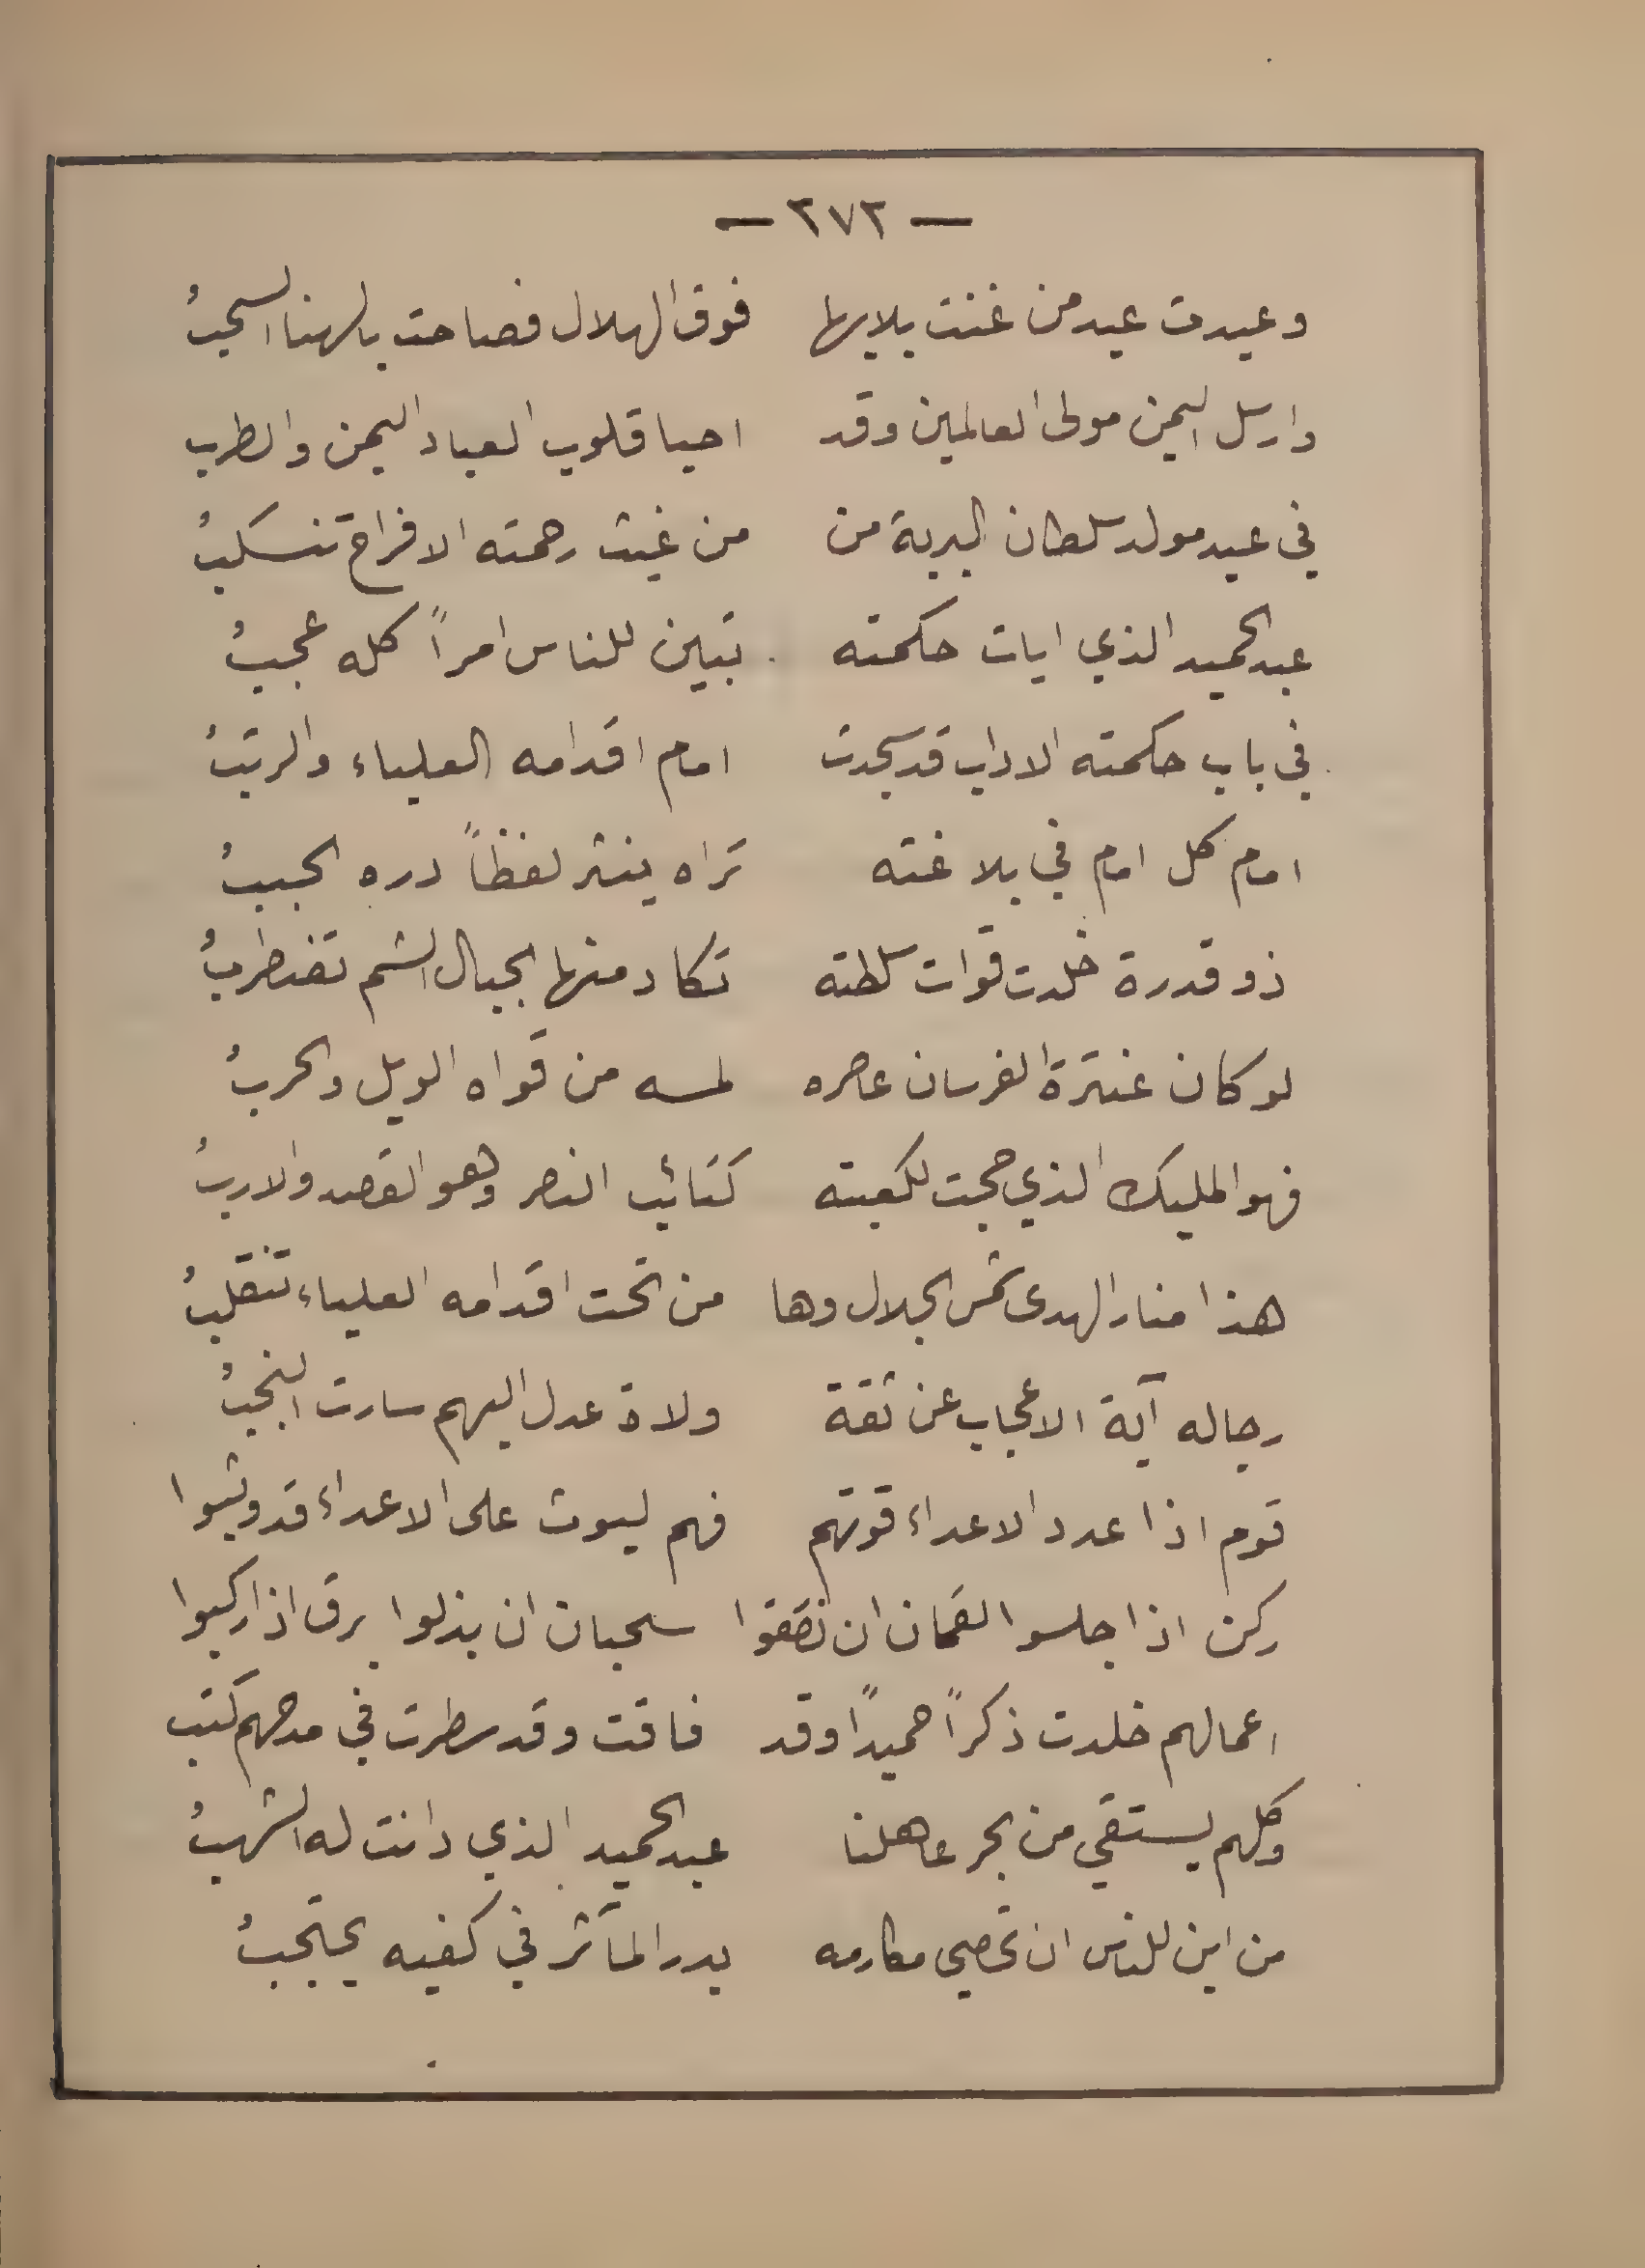 — ٢٧٢ —
وعيدت عيد من غنت بلابلها فوق الهلال فصاحت بالهنا السحبُ
وارسل اليمن مولى العالمين وقد احيا قلوب العباد اليمن والطرب
في عيد مولد سلطان البرية من من غيث رحمته الافراح تنسكبُ
عبد الحميد الذي ايات حكمته تبين للناس امراً كله عجبُ
في باب حكمته الاداب قد سجدت امام اقدامه العلياء والرتبُ
امام كل امام في بلاغته تراه ينثر لفظاً دره الحببُ
ذو قدرة خلدت قوات سلطته تكاد منها الجبال الشم تضطربُ
لو كان عنترة الفرسان عاصره لمسه من قواه الويل والحربُ
فهو المليك الذي حجت لكعبته كتائب النصر وهو القصد والاربُ
هذا منار الهدى شمس الجلال وها من تحت اقدامه العلياء تنقلبُ
رجاله آية الاعجاب عن ثقة ولاة عدل اليهم سارت النجبُ
قوم اذا عدد الاعداء قوتهم فهم ليوث على الاعداء قد وثبوا
ركن اذا جلسوا لقمان ان نطقوا سحبان ان بذلوا برق اذا ركبوا
اعمالهم خلدت ذكراً حميداً وقد فاقت وقد سطرت في مدحهم كتب
وكلهم يستقي من بحر عاهلنا عبد الحميد الذي دانت له الشهبُ
من اين للناس ان تحصي مكارمه بدر المآثر في كفيه يحتجبُ